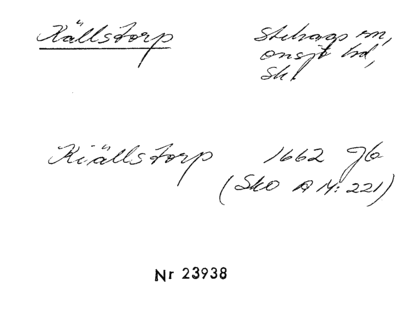 Källstorp Stehags sn,
onsjö hd,
Sk.
Kiällstorp 1662 Jb
(Sko A 14:221)
Nr 23938